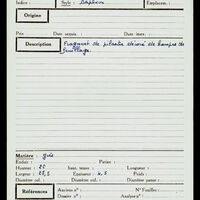 Indice : Style : Saphen Emplacem. :
Origine
Prix Date acquis. : Date inv. :
Description Fragment de pilastre décoré de hampes de
feuillage.
Matière : grès
Enduit : Patine :
Hauteur : 25 haut. suppo : Longueur :
Largeur : 23,5 Epaisseur : 4,5 Poids :
Diamètre col. : Diamètre ouv. : Diamètre panse :
Références Anciens n° : N° Fouilles :
Dossier n° : Analyse n° :